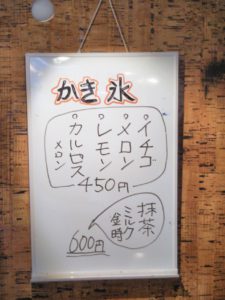 かき氷
イチゴ
メロン
レモン
カルピス
メロン
450円
抹茶
ミルク
金時
600円